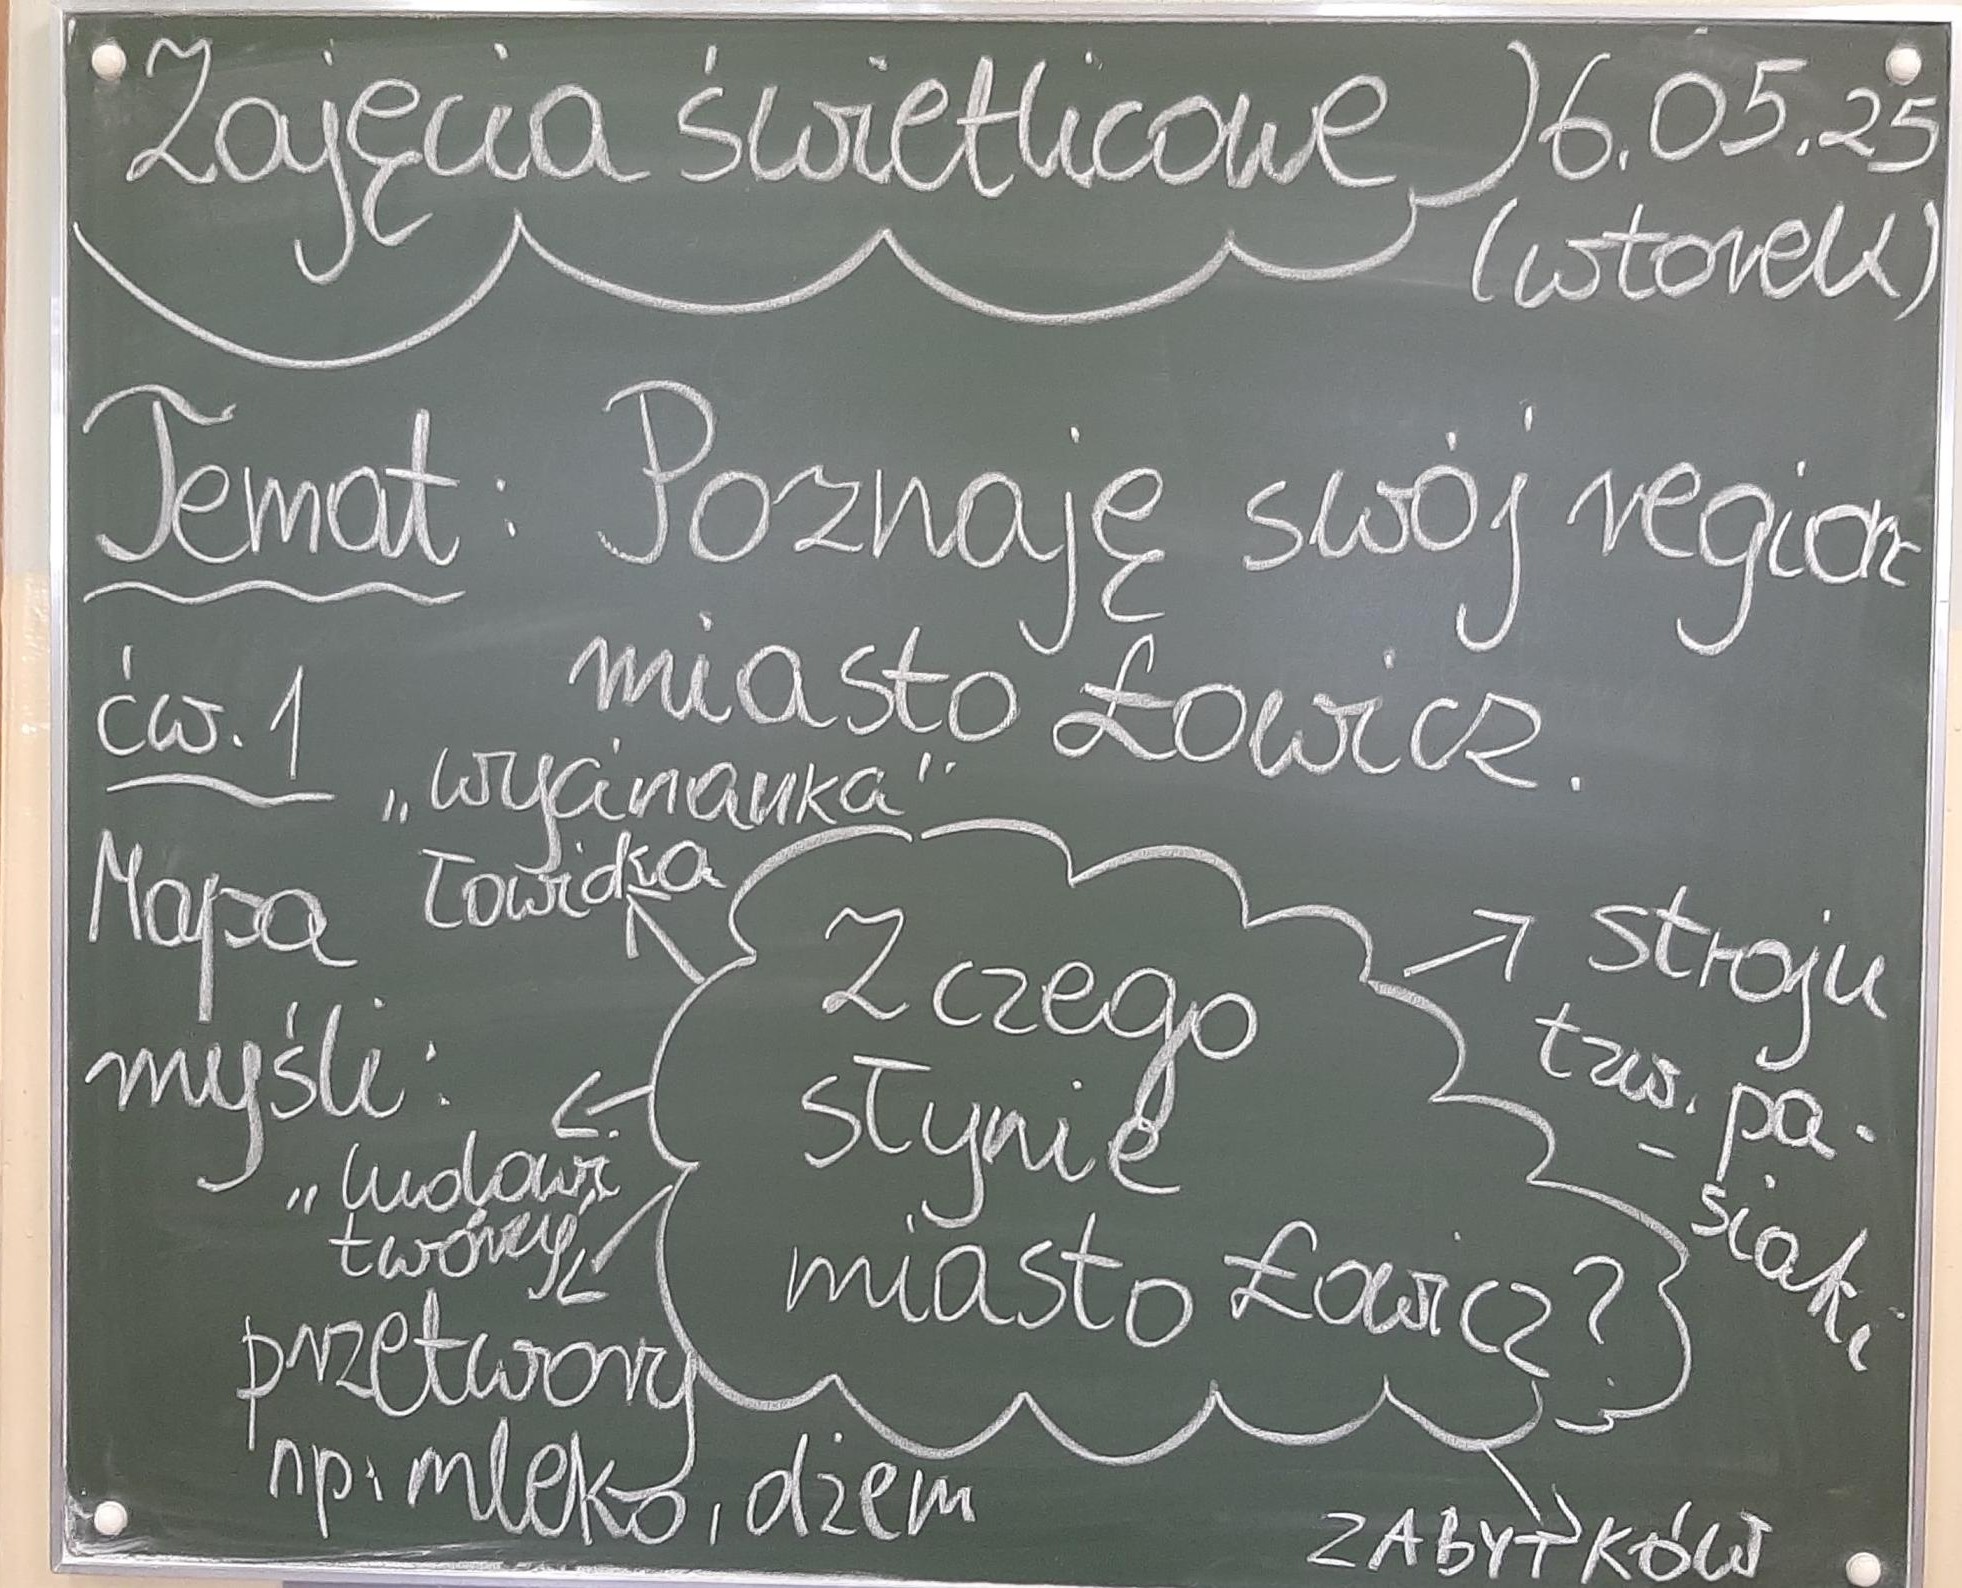 Zajęcia świetlicowe 6.05.25
(wtorek)
Temat: Poznaję swój region
miasto Łowicz.
ćw. 1
Mapa
myśli:
„wycinanka"
Łowicka
Z czego
słynie
miasto Łowicz?
stroju
tzw. pa-
- siaki
„ludowi
twórcy"
przetwory
np. mleko, dżem
ZABYTKÓW